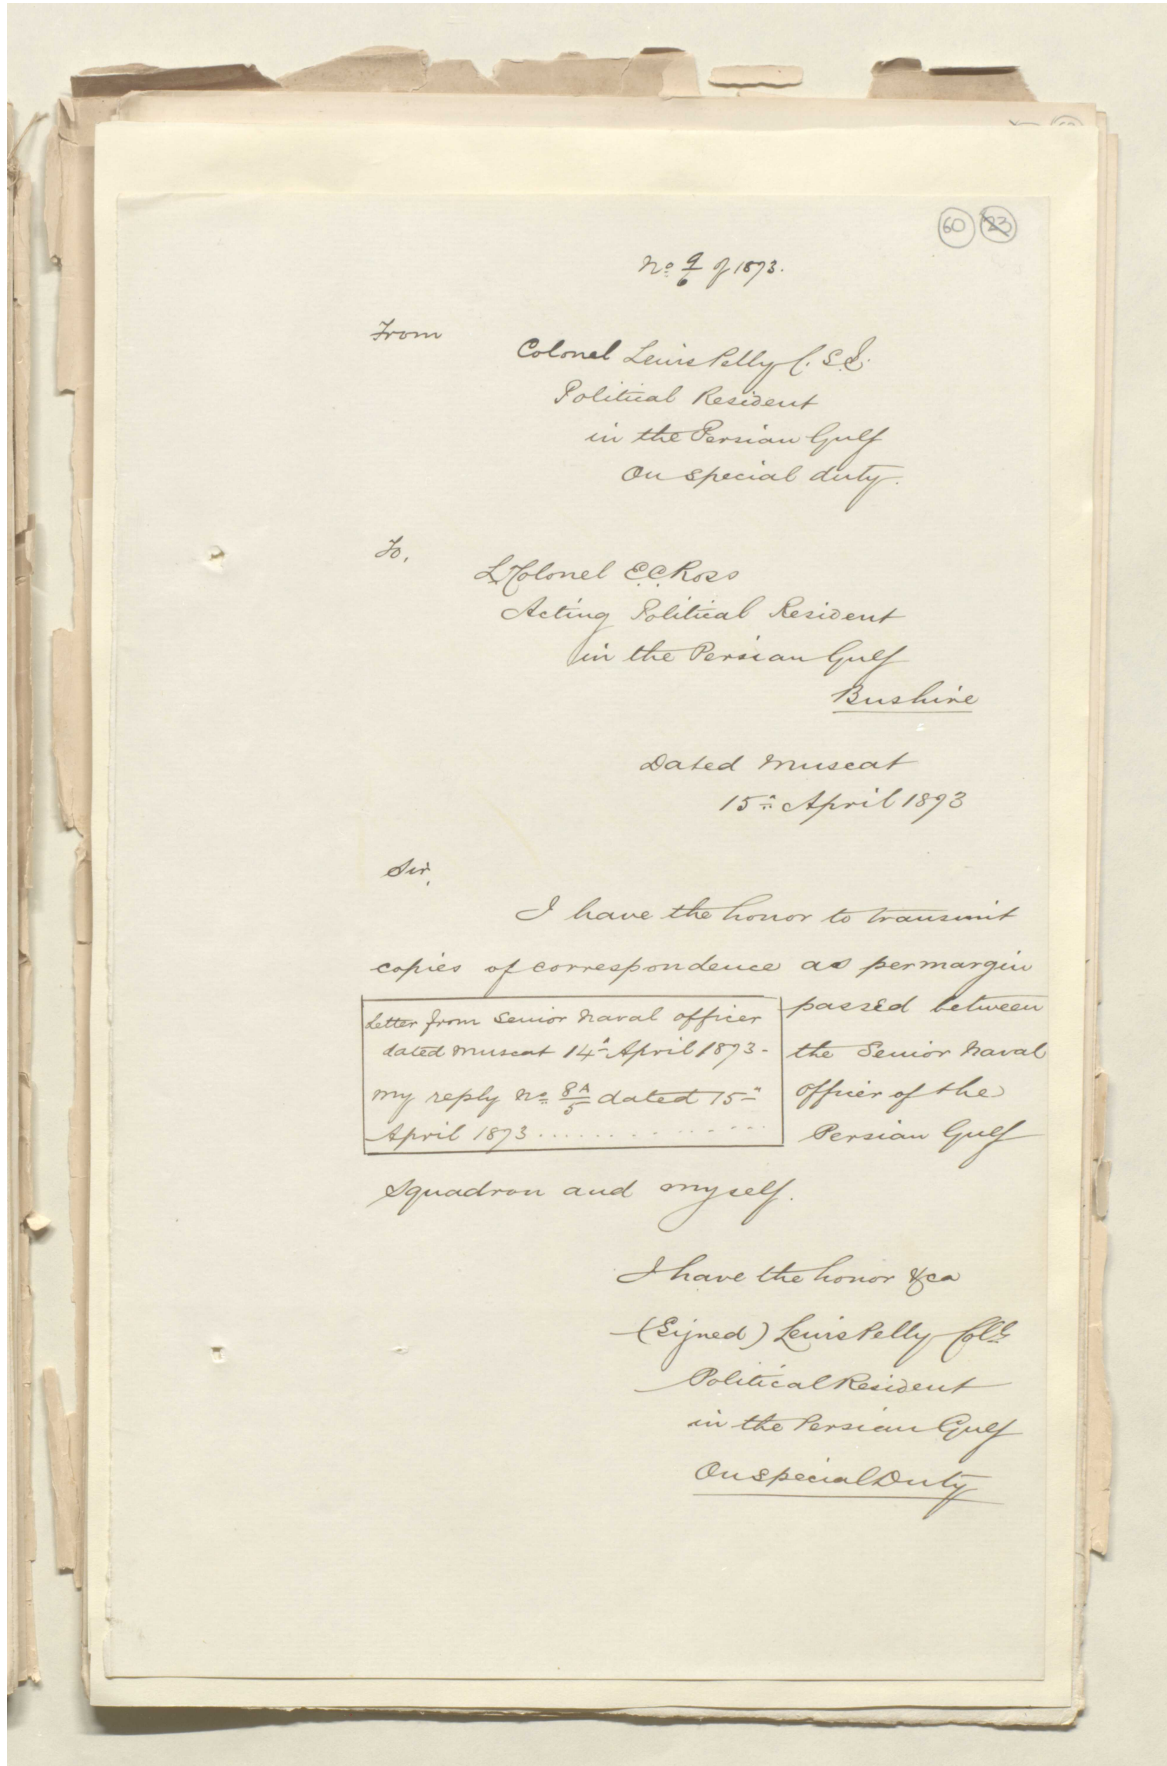 60 23
No. 9/6 of 1873.
From
Colonel Lewis Pelly C.S.I.
Political Resident
in the Persian Gulf
On special duty.
To,
Lt Colonel E.C. Ross
Acting Political Resident
in the Persian Gulf
Bushire
Dated Muscat
15th April 1873
Sir,
I have the honor to transmit
copies of correspondence as per margin
passed between
the Senior Naval
officer of the
Persian Gulf
Letter from Senior Naval officer
dated Muscat 14th April 1873-
My reply No. 8A/5 dated 15th
April 1873 ..............
Squadron and myself.
I have the honor &ca
(Signed) Lewis Pelly Coll
Political Resident
in the Persian Gulf
On special Duty